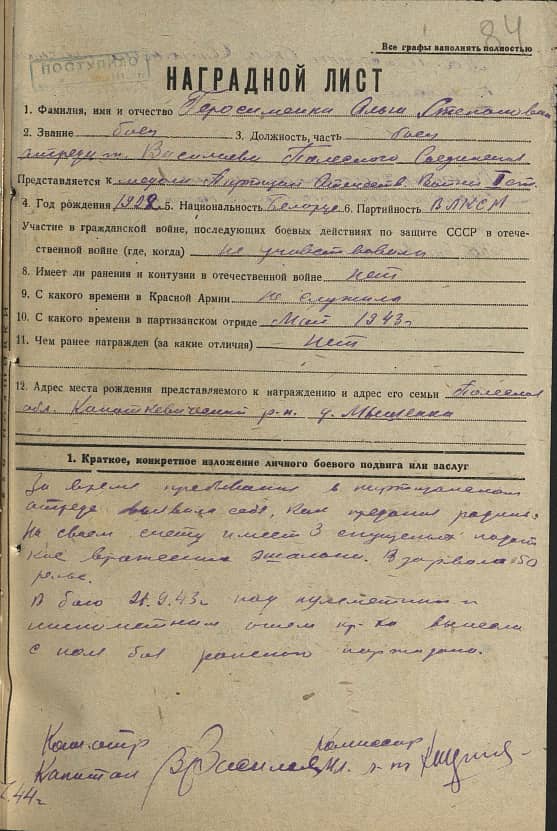 84
Все графы выполнять полностью
НАГРАДНОЙ ЛИСТ
1. Фамилия, имя и отчество Герасименко Ольга Степановна
2. Звание боец 3. Должность, часть боец
отряда им. Васильева Полесского Соединения
Представляется к медали Партизан Отечеств. Войны II ст.
4. Год рождения 1928 5. Национальность Белорус 6. Партийность ВЛКСМ
Участие в гражданской войне, последующих боевых действиях по защите СССР в отече-
ственной войне (где, когда) не участвовала
8. Имеет ли ранения и контузии в отечественной войне нет
9. С какого времени в Красной Армии не служила
10. С какого времени в партизанском отряде Май 1943г
11. Чем ранее награжден (за какие отличия) нет
12. Адрес места рождения представляемого к награждению и адрес его семьи Полесская
обл. Копаткевический р-н. д. Мышенка
1. Краткое, конкретное изложение личного боевого подвига или заслуг
За время пребывания в партизанском
отряде показала себя, как преданая родине.
На своем счету имеет 3 спущеных под от
кос вражеских эшалона. Взорвала 50
рельс.
В бою .9.43г под пулеметным и
минометным огнем пр-ка вынесла
с поля боя раненого партизана.
Ком. отр комиссар
Капитан Васильев
44г